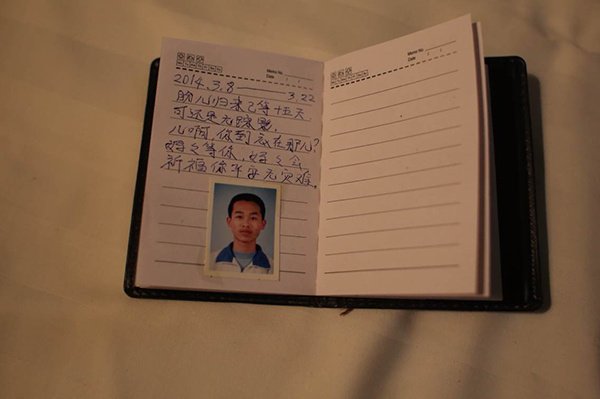 Memo No.
Date / /
2014.3.8——3.22
盼儿归来已等十五天
可还是无踪影
儿啊,你到底在那儿?
妈々等你,妈々会
祈福你平安无灾难.
Memo No.
Date / /